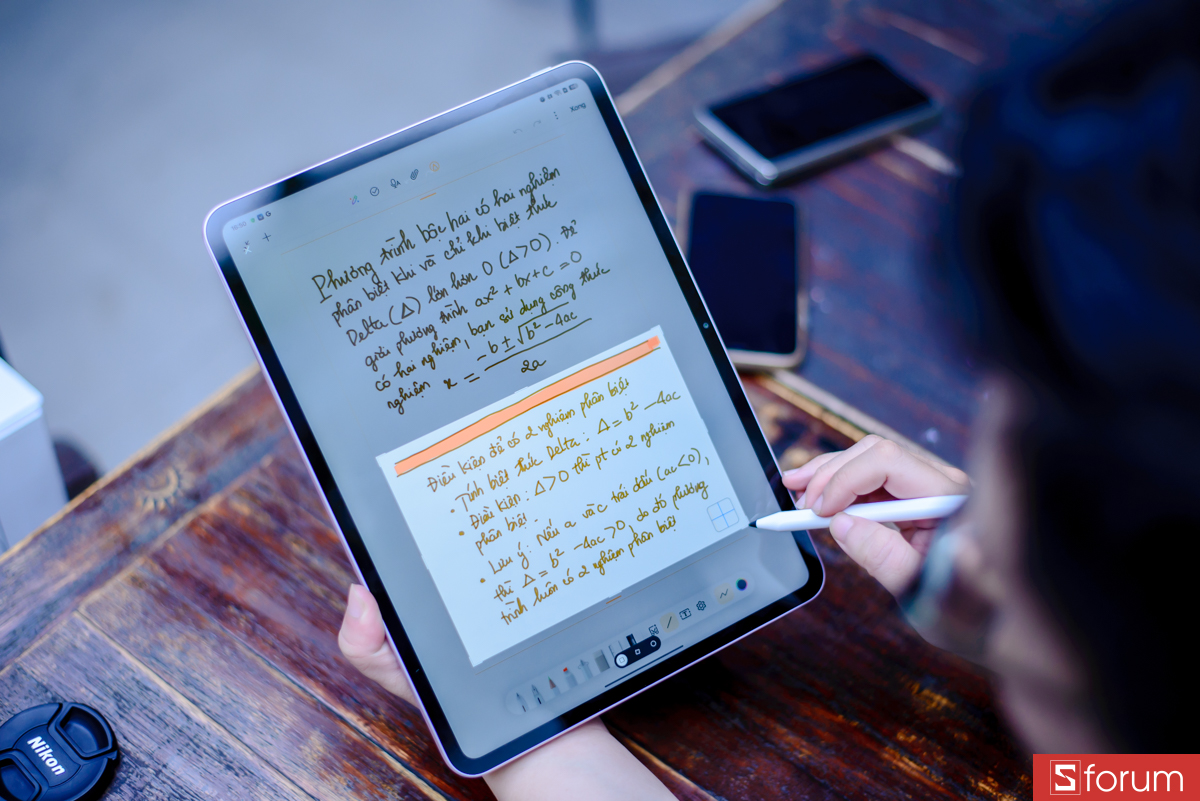 Xong
Phương trình bậc hai có hai nghiệm
phân biệt khi và chỉ khi biệt thức
Delta (Δ) lớn hơn 0 (Δ>0). Để
giải phương trình ax² + bx + c = 0
có hai nghiệm, bạn sử dụng công thức
nghiệm x = -b ± √b² - 4ac
2a
Điều kiện để có 2 nghiệm phân biệt
• Tính biệt thức Delta: Δ = b² - 4ac
Điều kiện: Δ>0 thì pt có 2 nghiệm
• phân biệt
• Lưu ý: Nếu a và c trái dấu (ac<0),
thì Δ = b² - 4ac >0, do đó phương
trình luôn có 2 nghiệm phân biệt
Nikon
S forum